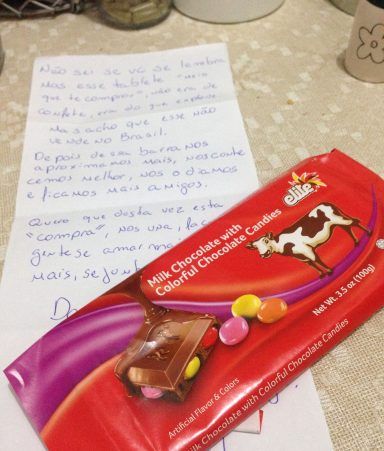 Não sei se vc se lembra
Mas esse tablete "meio
que te comprou", não era de
confete, era do que explode
Mas acho que esse não
vende no Brasil.
Depois de sua barra nos
aproximamos mais, nos conhe
cemos melhor, nos odiamos
e ficamos mais amigos.
Quero que desta vez esta
"compra", nos una, faça
gente se amar
mais, se
elite
Milk Chocolate with
Colorful Chocolate Candies
Net Wt. 3.5 oz (100g)
Artificial Flavor & Colors
Milk Chocolate with Colorful Chocolate Candies